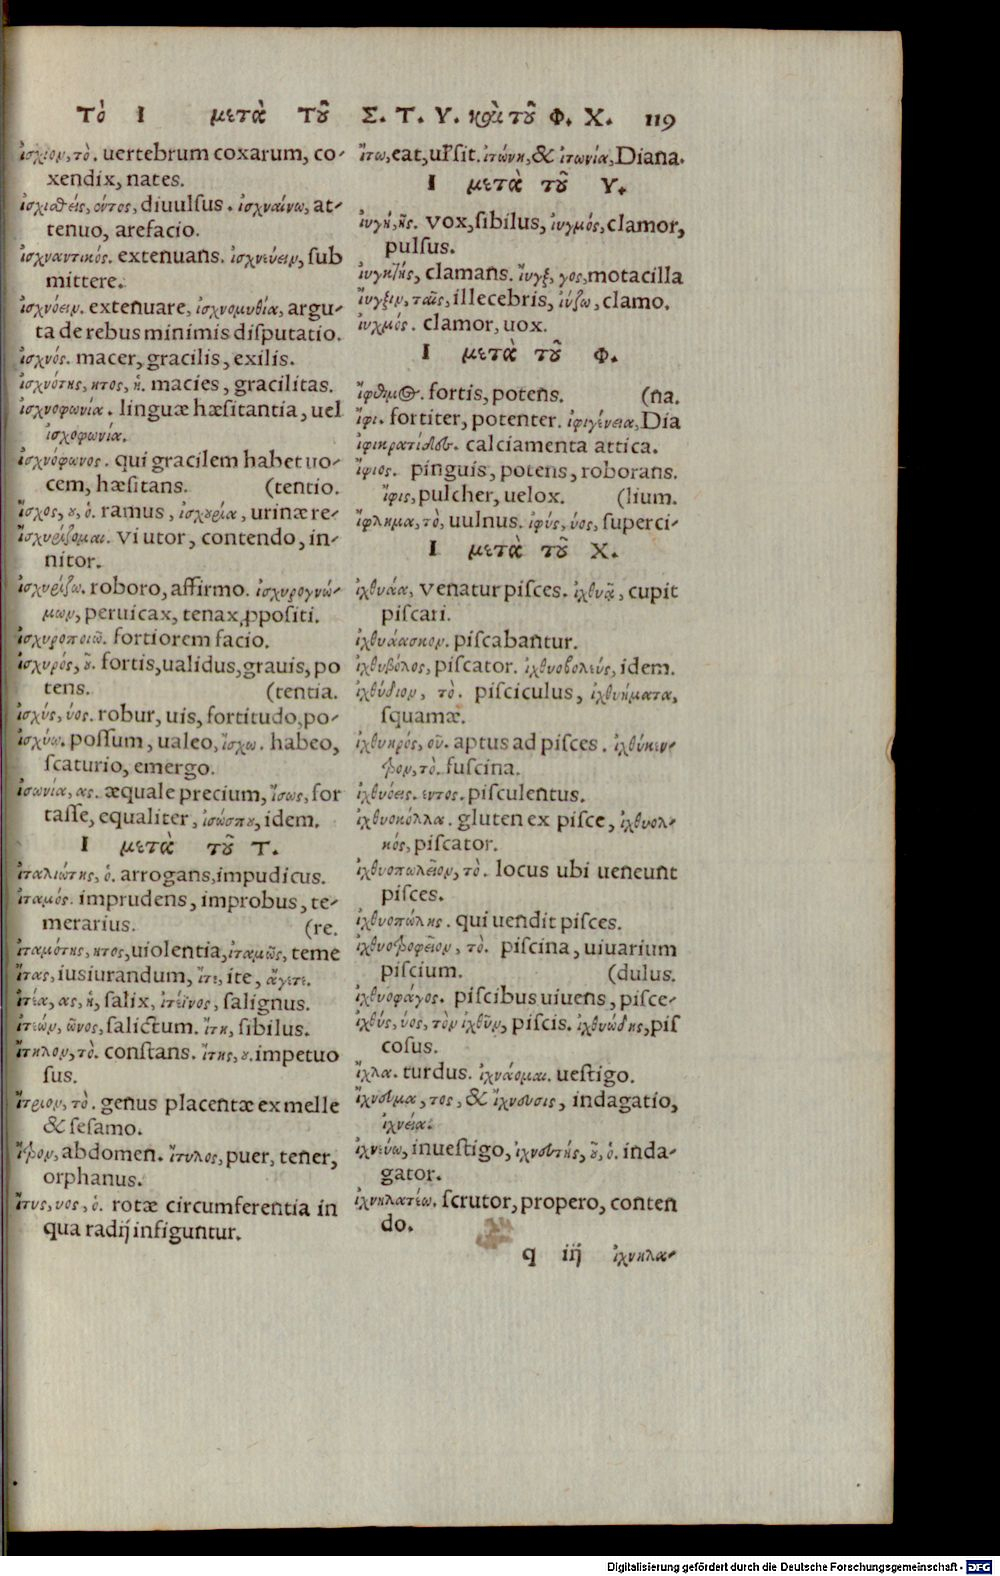 Τὸ Ι μετὰ Τοῦ Σ. Τ. Υ. καὶ τοῦ Φ. Χ. 119
ἰσχίον, τὸ. uertebrum coxarum, co-
xendix, nates.
ἰσχιαθείς, όντος, diuulsus. ἰσχναίνω, at-
tenuo, arefacio.
ἰσχναντικός. extenuans. ἰσχνεύειν, sub
mittere.
ἰσχνόειν. extenuare, ἰσχνομυθία, argu-
ta de rebus minimis disputatio.
ἰσχνός. macer, gracilis, exilis.
ἰσχνότης, ητος, ἡ. macies, gracilitas.
ἰσχνοφωνία. linguæ hæsitantia, uel
ἰσχοφωνία.
ἰσχνόφωνος. qui gracilem habet uo-
cem, hæsitans. (tentio.
ἴσχος, ου, ὁ. ramus, ἰσχουρία, urinæ re-
ἰσχυρίζομαι. vi utor, contendo, in-
nitor.
ἰσχυρίζω. roboro, affirmo. ἰσχυρογνώ-
μων, peruicax, tenax ꝓpositi.
ἰσχυροποιῶ. fortiorem facio.
ἰσχυρός, οῦ. fortis, ualidus, grauis, po
tens. (tentia.
ἰσχύς, ύος. robur, uis, fortitudo, po-
ἰσχύω. possum, ualeo, ἴσχω. habeo,
scaturio, emergo.
ἰσωνία, ας. æquale precium, ἴσως, for
tasse, equaliter, ἰσώσπου, idem.
Ι μετὰ τοῦ Τ.
ἰταλιώτης, ὁ. arrogans, impudicus.
ἰταμός. imprudens, improbus, te-
merarius. (re.
ἰταμότης, ητος, uiolentia, ἰταμῶς, teme
ἴτας, iusiurandum, ἴτε, ite, ἄγετε.
ἰτέα, ας, ἡ, salix, ἰτέϊνος, salignus.
ἰτεών, ῶνος, salictum. ἴτη, sibilus.
ἴτηλον, τὸ. constans. ἴτης, ου. impetuo
sus.
ἴτριον, τὸ. genus placentæ ex melle
& sesamo.
ἴτρον, abdomen. ἴτυλος, puer, tener,
orphanus.
ἴτυς, υος, ὁ. rotæ circumferentia in
qua radij infiguntur.
ἴτω, eat, uĸsit. ἰτώνη, & ἰτωνία, Diana.
Ι μετὰ τοῦ Υ.
ἰυγή, ῆς. vox, sibilus, ἰυγμός, clamor,
pulsus.
ἰυγητής, clamans. ἴυγξ, γος, motacilla
ἴυγξιν, ταῖς, illecebris, ἰύζω, clamo.
ἰυχμός. clamor, uox.
Ι μετὰ τοῦ Φ.
ἴφθιμος. fortis, potens. (na.
ἶφι. fortiter, potenter. ἰφιγένεια, Dia
ἰφικρατίδες. calciamenta attica.
ἴφιος. pinguis, potens, roborans.
ἴφις, pulcher, uelox. (lium.
ἴφλημα, τὸ, uulnus. ἰφύς, ύος, superci-
Ι μετὰ τοῦ Χ.
ἰχθυάα, venatur pisces. ἰχθυᾷ, cupit
piscari.
ἰχθυάασκον. piscabantur.
ἰχθυβόλος, piscator. ἰχθυοβολεύς, idem.
ἰχθύδιον, τὸ. pisciculus, ἰχθυήματα,
squamæ.
ἰχθυηρός, οῦ. aptus ad pisces. ἰχθύκεν-
τρον, τὸ. fuscina.
ἰχθυόεις. εντος. pisculentus.
ἰχθυοκόλλα. gluten ex pisce, ἰχθυολ-
κός, piscator.
ἰχθυοπωλεῖον, τὸ. locus ubi ueneunt
pisces.
ἰχθυοπώλης. qui uendit pisces.
ἰχθυοτροφεῖον, τὸ. piscina, uiuarium
piscium. (dulus.
ἰχθυοφάγος. piscibus uiuens, pisce-
ἰχθύς, ύος, τὸν ἰχθῦν, piscis. ἰχθυώδης, pis
cosus.
ἴχλα. turdus. ἰχνάομαι. uestigo.
ἴχνευμα, τος, & ἴχνευσις, indagatio,
ἰχνεία.
ἰχνεύω, inuestigo, ἰχνευτής, οῦ, ὁ. inda-
gator.
ἰχνηλατέω. scrutor, propero, conten
do.
q iij ἰχνηλα-
Digitalisierung gefördert durch die Deutsche Forschungsgemeinschaft - DFG